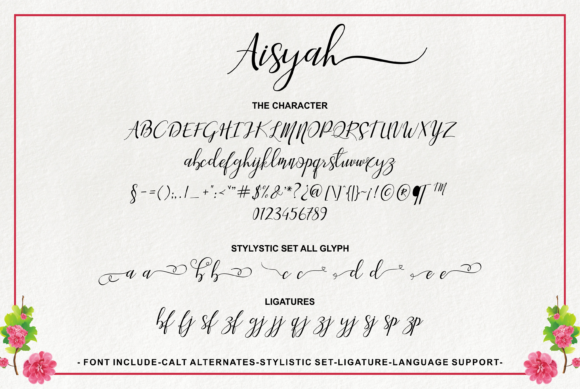 Aisyah
THE CHARACTER
ABCDEFGHIJKLMNOPQRSTUVWXYZ
abcdefghijklmnopqrstuvwxyz
§-=();,.!_+":<'"#$%&*?¿@[\]`{|}~¡!©®¶™
0123456789
STYLYSTIC SET ALL GLYPH
a a b b c c d d e e
LIGATURES
bf fj sf zf gj jj qj zj yj sj sp zp
- FONT INCLUDE-CALT ALTERNATES-STYLISTIC SET-LIGATURE-LANGUAGE SUPPORT-